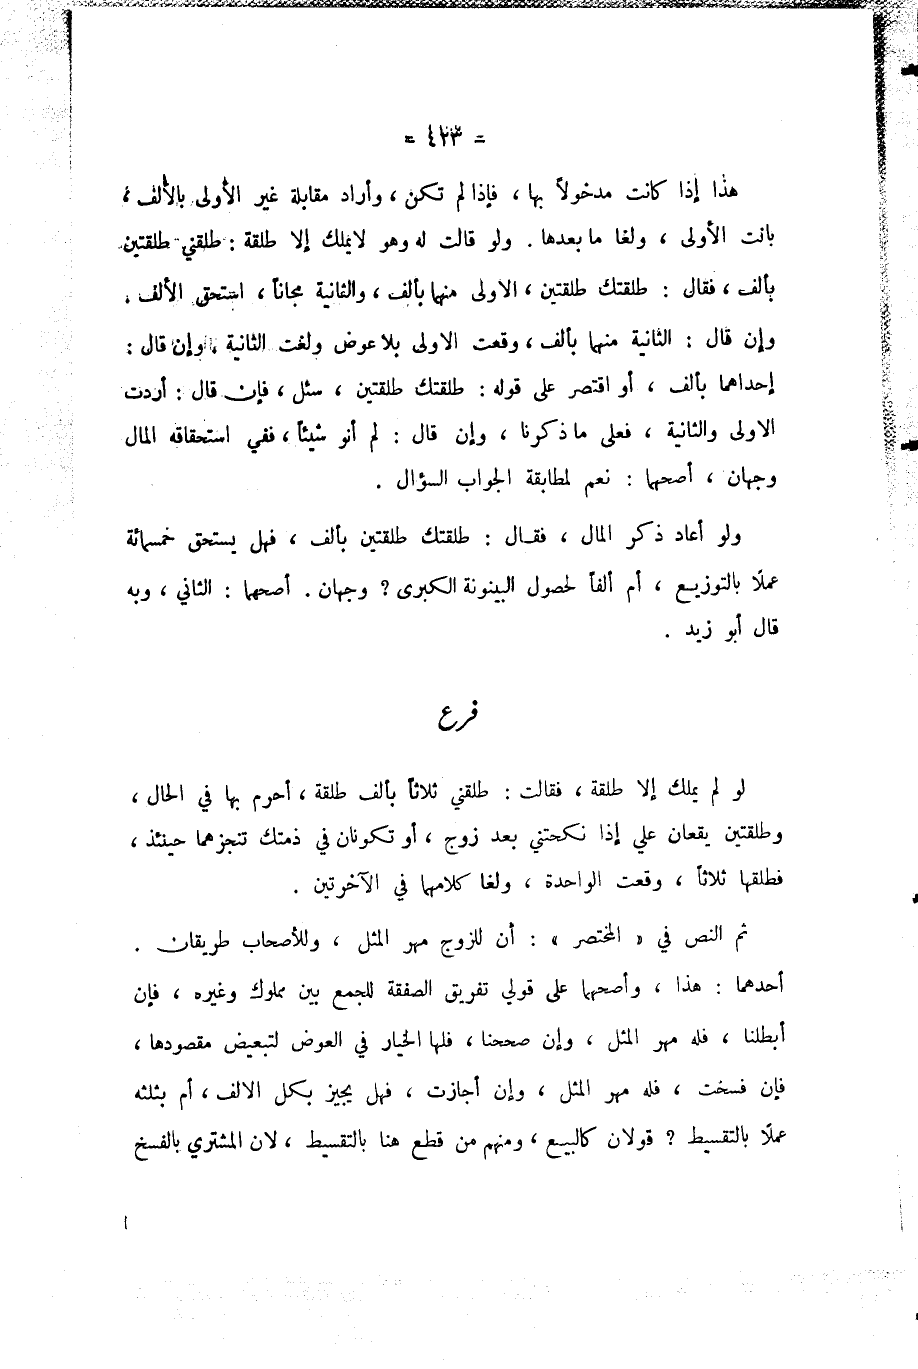 - ٤٢٣ -
هذا إذا كانت مدخولاً بها ، فإذا لم تكن ، وأراد مقابلة غير الأولى بالألف ،
بانت الأولى ، ولغا ما بعدها . ولو قالت له وهو لا يملك إلا طلقة : طلقني طلقتين
بألف ، فقال : طلقتك طلقتين ، الاولى منهما بألف ، والثانية مجاناً ، استحق الألف .
وإن قال : الثانية منهما بألف ، وقعت الاولى بلا عوض ولغت الثانية ، وإن قال :
إحداهما بألف ، أو اقتصر على قوله : طلقتك طلقتين ، سئل ، فإن قال : أردت
الاولى والثانية ، فعلى ما ذكرنا ، وإن قال : لم أنو شيئاً ، ففي استحقاقه المال
وجهان ، أصحهما : نعم لمطابقة الجواب السؤال .
ولو أعاد ذكر المال ، فقال : طلقتك طلقتين بألف ، فهل يستحق خمسمائة
عملاً بالتوزيع ، أم ألفاً لحصول البينونة الكبرى ؟ وجهان . أصحهما : الثاني ، وبه
قال أبو زيد .
فرع
لو لم يملك إلا طلقة ، فقالت : طلقني ثلاثاً بألف طلقة ، أحرم بها في الحال ،
وطلقتين يقعان علي إذا نكحتني بعد زوج ، أو تكونان في ذمتك تنجزهما حينئذ ،
فطلقها ثلاثاً ، وقعت الواحدة ، ولغا كلامهما في الآخرتين .
ثم النص في « المختصر » : أن للزوج مهر المثل ، وللأصحاب طريقان .
أحدهما : هذا ، وأصحهما على قولي تفريق الصفقة للجمع بين مملوك وغيره ، فإن
أبطلنا ، فله مهر المثل ، وإن صححنا ، فلها الخيار في العوض لتبعيض مقصودها ،
فإن فسخت ، فله مهر المثل ، وإن أجازت ، فهل يجيز بكل الالف ، أم بثلثه
عملاً بالتقسيط ؟ قولان كالبيع ، ومنهم من قطع هنا بالتقسيط ، لان المشتري بالفسخ